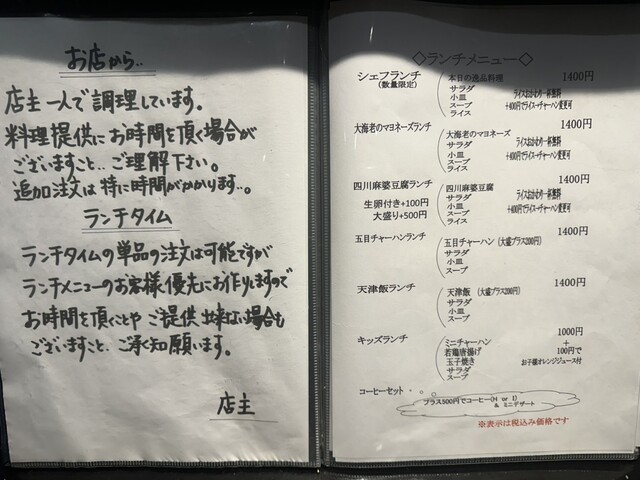 お店から..
店主一人で調理しています。
料理提供にお時間を頂く場合が
ございますこと、ご理解下さい。
追加注文は特に時間がかかります..。
ランチタイム
ランチタイムの単品の注文は可能ですが
ランチメニューのお客様優先にお作りしますので
お時間を頂くことや ご提供出来ない場合も
ございますこと、ご承知願います。
店主
◇ランチメニュー◇
シェフランチ 本日の逸品料理 1400円
(数量限定) サラダ ライスおかわり一杯無料
小皿 +400円でライス→チャーハン変更可
スープ
ライス
大海老のマヨネーズランチ 大海老のマヨネーズ 1400円
サラダ ライスおかわり一杯無料
小皿 +400円でライス→チャーハン変更可
スープ
ライス
四川麻婆豆腐ランチ 四川麻婆豆腐 1400円
生卵付き+100円 サラダ ライスおかわり一杯無料
大盛り+500円 小皿 +400円でライス→チャーハン変更可
スープ
ライス
五目チャーハンランチ 五目チャーハン(大盛プラス200円) 1400円
サラダ
小皿
スープ
天津飯ランチ 天津飯 (大盛プラス200円) 1400円
サラダ
小皿
スープ
キッズランチ ミニチャーハン 1000円
若鶏唐揚げ +
玉子焼き 100円で
サラダ お子様オレンジジュース付
スープ
コーヒーセット
プラス500円でコーヒー(H or I)
& ミニデザート
※表示は税込み価格です